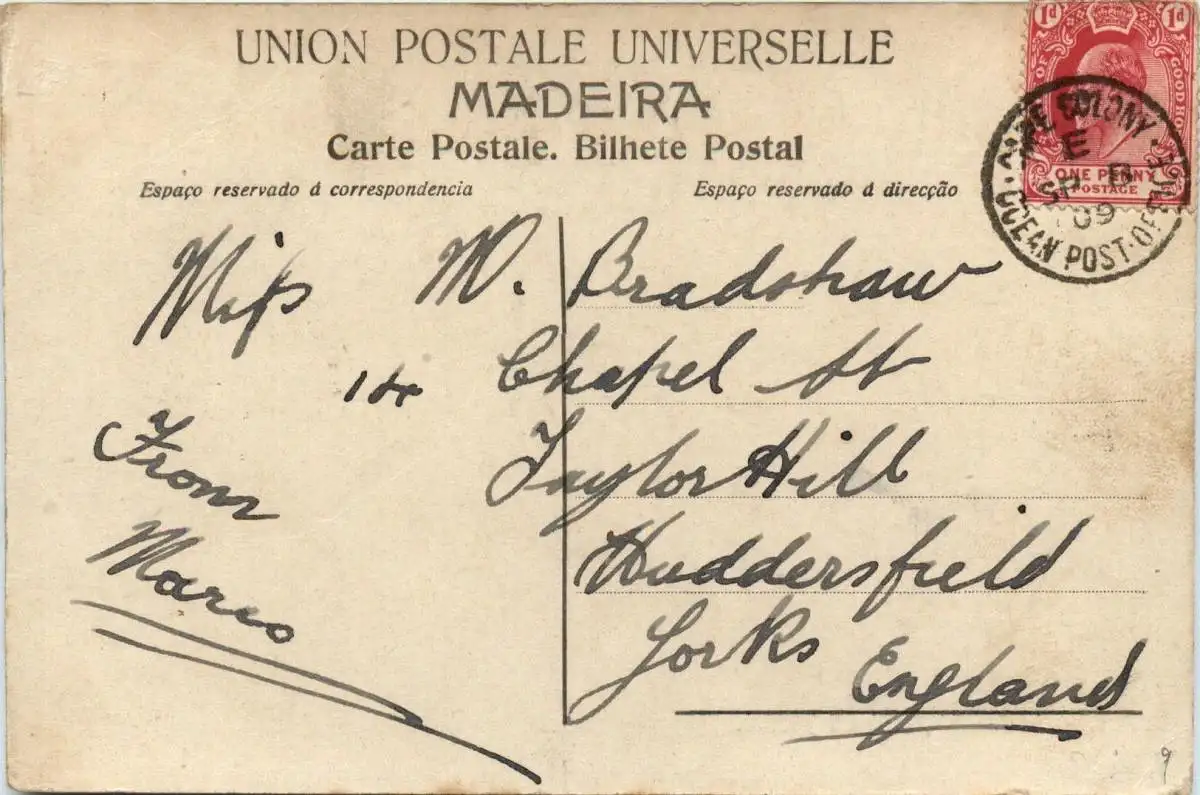 UNION POSTALE UNIVERSELLE
MADEIRA
Carte Postale. Bilhete Postal
Espaço reservado á correspondencia
Espaço reservado á direcção
1d 1d
OF GOOD HO
ONE PENNY
POSTAGE
CAPE COLONY
E
SP
09
OCEAN POST·OFFICE
Miss M. Bradshaw
14 Chapel St
Taylor Hill
Huddersfield
Yorks
England
From
9